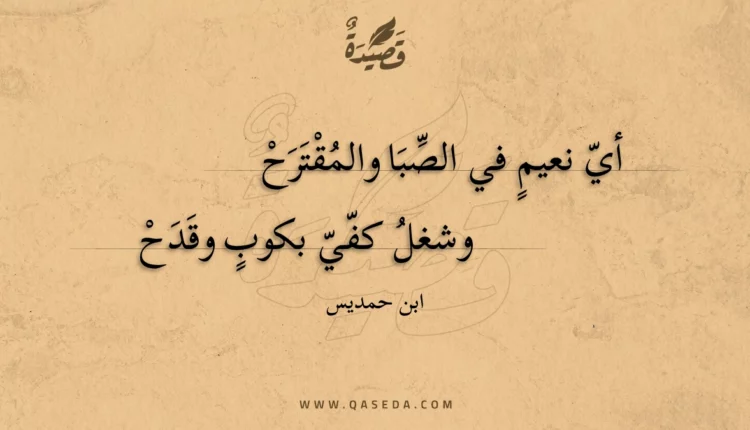 قَصِيْدَةٌ
أيّ نعيمٍ في الصِّبَا والمُقْتَرَحْ
وشغلُ كفّيّ بكوبٍ وقَدَحْ
ابن حمديس
WWW.QASEDA.COM